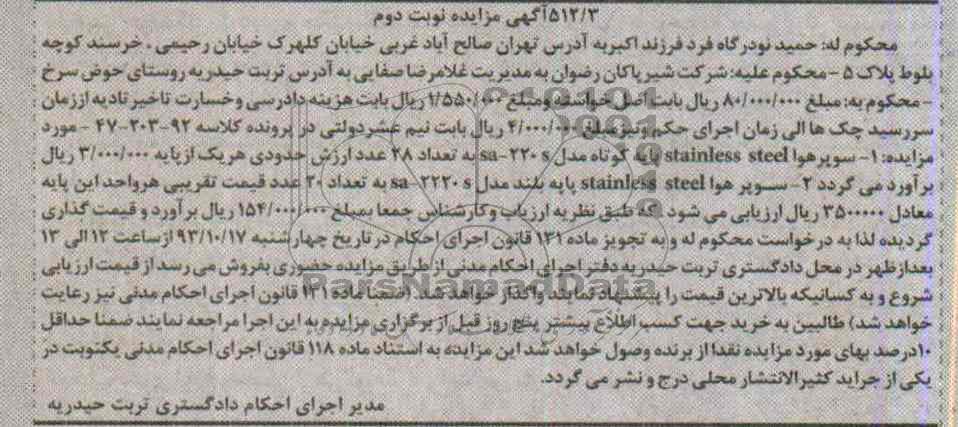 ۵۱۲/۳آگهی مزایده نوبت دوم
محکوم له: حمید نودرگاه فرد فرزند اکبربه آدرس تهران صالح آباد غربی خیابان کلهرک خیابان رحیمی . خرسند کوچه
بلوط پلاک ۵ - محکوم علیه: شرکت شیر پاکان رضوان به مدیریت غلامرضا صفایی به آدرس تربت حیدریه روستای حوض سرخ
- محکوم به: مبلغ ۸۰/۰۰۰/۰۰۰ ریال بابت اصل خواسته ومبلغ ۱/۵۵۰/۰۰۰ ریال بابت هزینه دادرسی وخسارت تاخیر تادیه اززمان
سررسید چک ها الی زمان اجرای حکم ونیزمبلغ ۴/۰۰۰/۰۰۰ ریال بابت نیم عشردولتی در پرونده کلاسه ۹۲-۲۰۳-۴۷ - مورد
مزایده: ۱- سوپرهوا stainless steel پایه کوتاه مدل sa-۲۲۰ s به تعداد ۲۸ عدد ارزش حدودی هریک ازپایه ۳/۰۰۰/۰۰۰ ریال
برآورد می گردد ۲- سوپر هوا stainless steel پایه بلند مدل sa-۲۲۲۰ s به تعداد ۲۰ عدد قیمت تقریبی هرواحد این پایه
معادل ۳۵۰۰۰۰۰ ریال ارزیابی می شود . که طبق نظریه ارزیاب وکارشناس جمعا بمبلغ ۱۵۴/۰۰۰/۰۰۰ ریال برآورد و قیمت گذاری
گردیده لذا به درخواست محکوم له و به تجویز ماده ۱۳۱ قانون اجرای احکام در تاریخ چهارشنبه ۹۳/۱۰/۱۷ ازساعت ۱۲ الی ۱۳
بعدازظهر در محل دادگستری تربت حیدریه دفتر اجرای احکام مدنی از طریق مزایده حضوری بفروش می رسد از قیمت ارزیابی
شروع و به کسانیکه بالاترین قیمت را پیشنهاد نمایند واگذار خواهد شد. (ضمنا ماده ۱۳۱ قانون اجرای احکام مدنی نیز رعایت
خواهد شد) طالبین به خرید جهت کسب اطلاع بیشتر پنج روز قبل از برگزاری مزایده به این اجرا مراجعه نمایند ضمنا حداقل
۱۰درصد بهای مورد مزایده نقدا از برنده وصول خواهد شد این مزایده به استناد ماده ۱۱۸ قانون اجرای احکام مدنی یکنوبت در
یکی از جراید کثیرالانتشار محلی درج و نشر می گردد.
مدیر اجرای احکام دادگستری تربت حیدریه
ParsNamadData